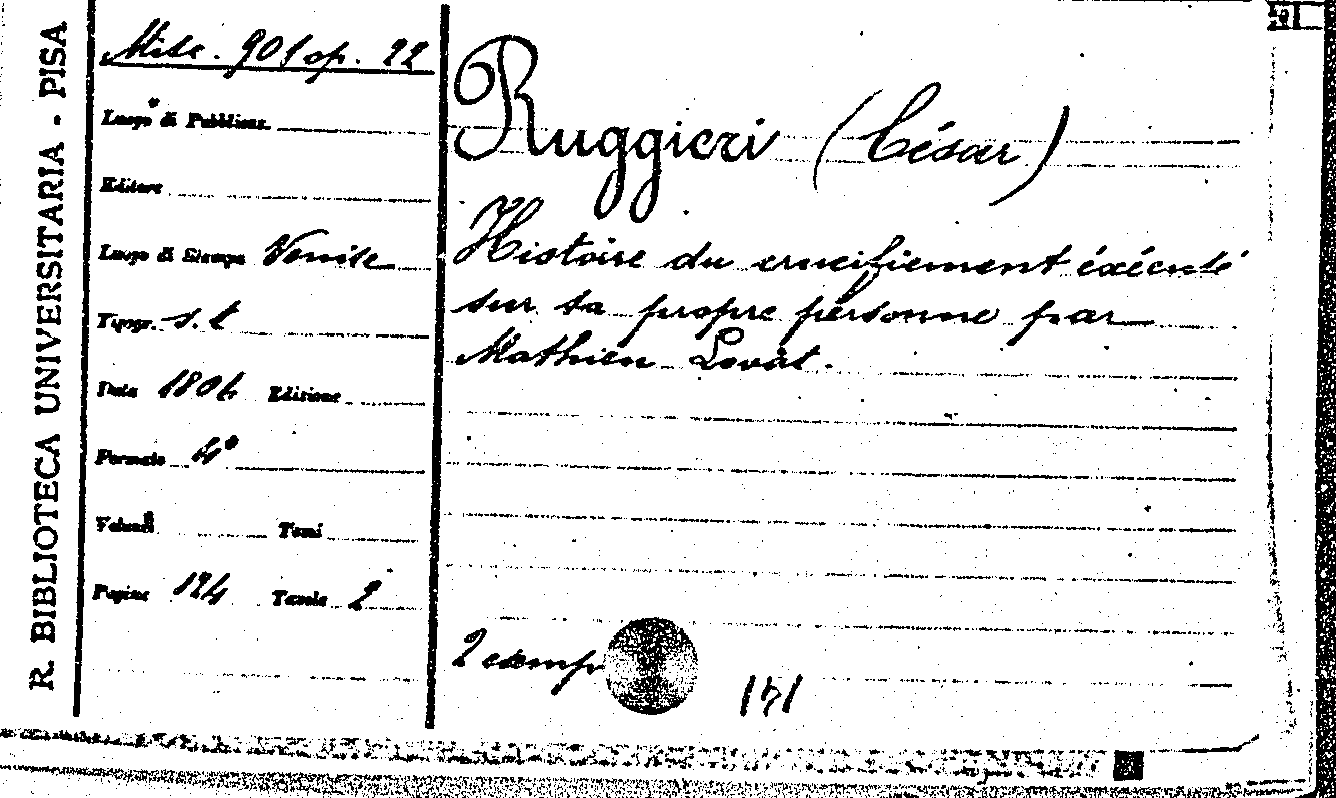 R. BIBLIOTECA UNIVERSITARIA - PISA
Misc. 901 op. 22
Luogo di Pubblicaz.
Editore
Luogo di Stampa Venise
Tipogr. s. t
Data 1804 Edizione
Formato 4°
Volumi Tomi
Pagine 124 Tavole 2
Ruggieri (César)
Histoire du crucifiement éxécuté
sur sa propre personne par
Mathieu Lovat.
2 esemp